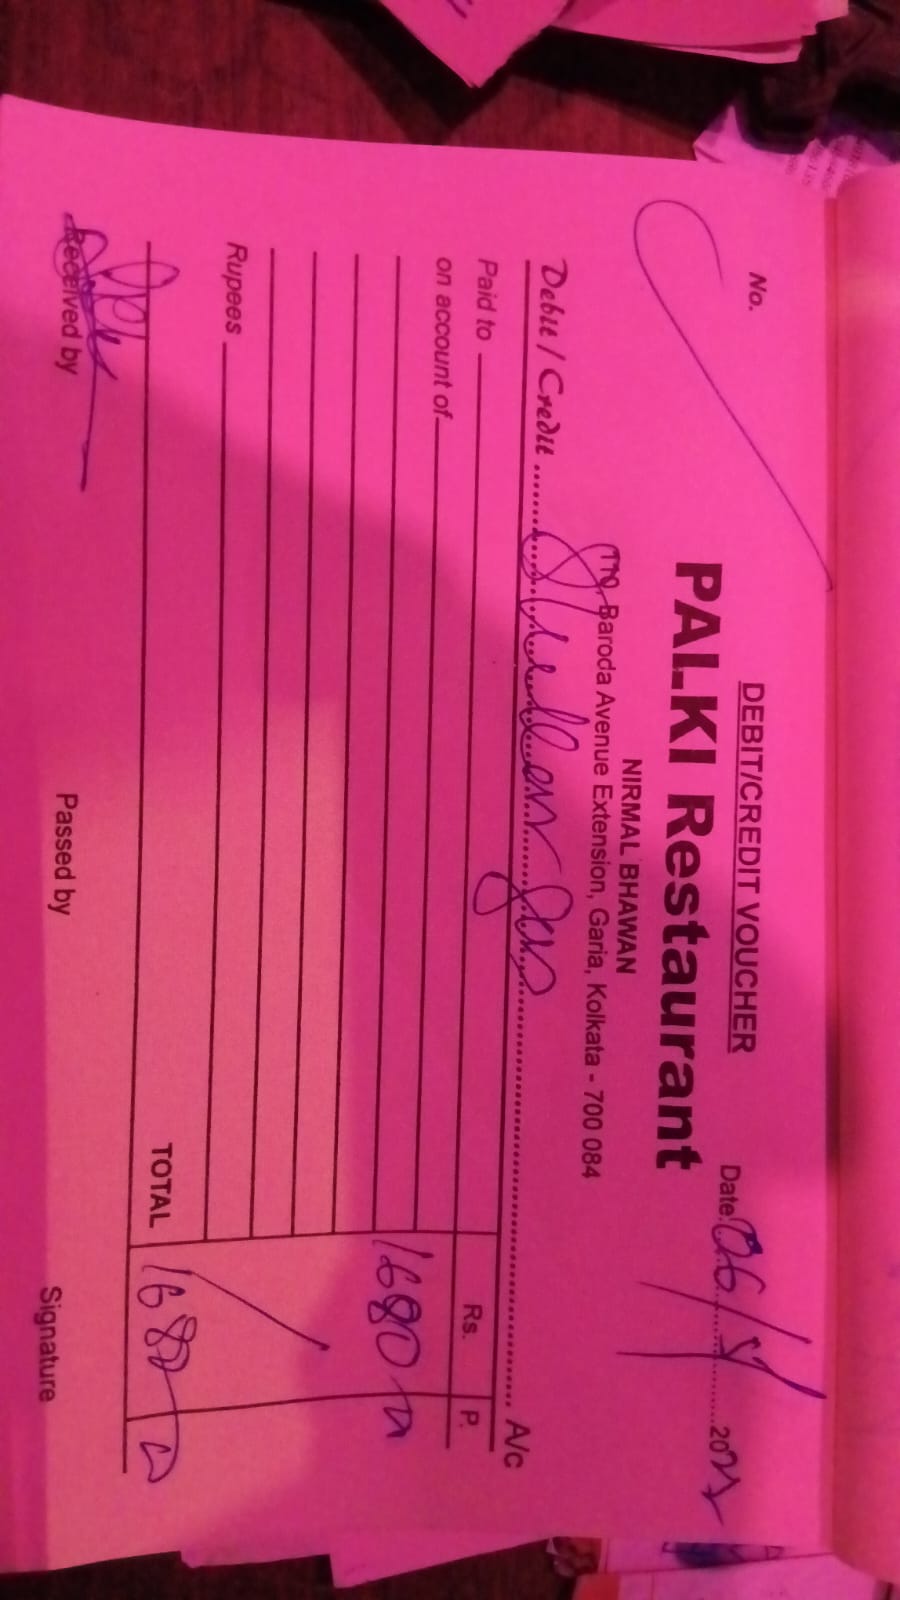 DEBIT/CREDIT VOUCHER
No.
Date 06/
PALKI Restaurant
NIRMAL BHAWAN
110, Baroda Avenue Extension, Garia, Kolkata - 700 084
Debit / Credit A/c
Paid to
Rs. P.
on account of
1680
Rupees
TOTAL 1680
Received by Passed by Signature